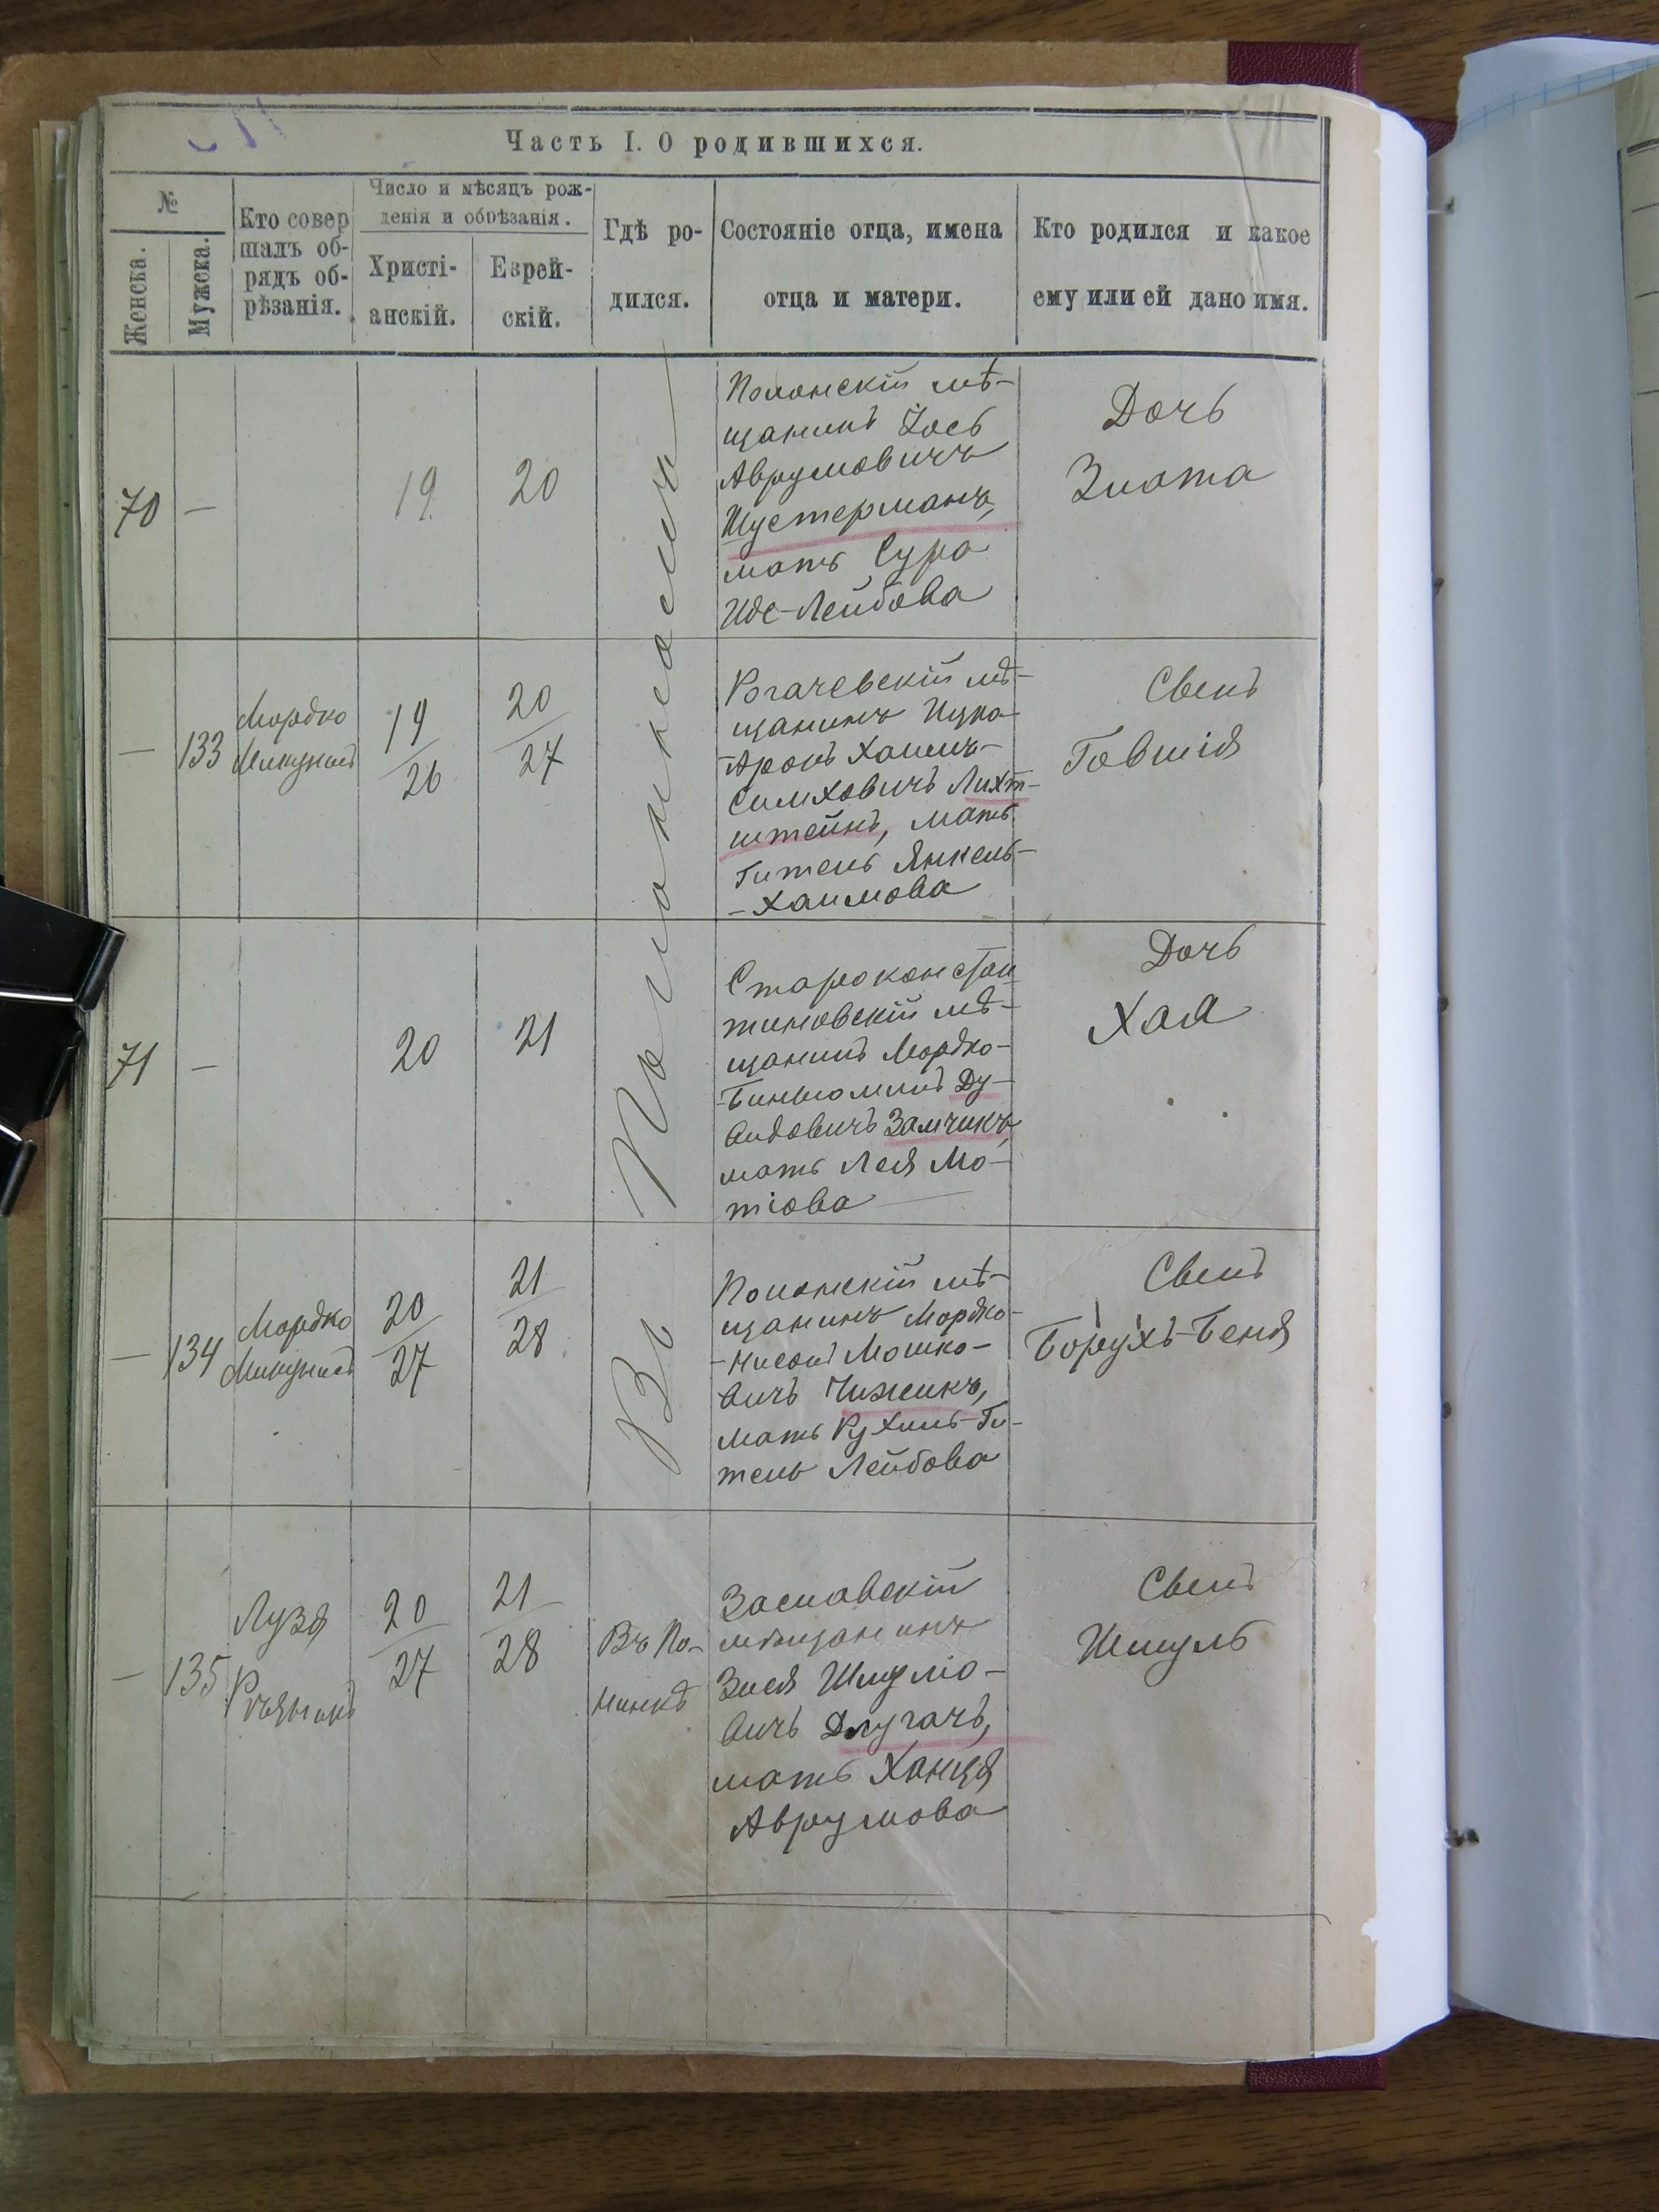 Часть I. О родившихся.
№
Женска.
Мужска.
Кто совер
шалъ об-
рядъ об-
рѣзанія.
Число и мѣсяцъ рож-
денія и обрѣзанія.
Христі-
анскій.
Еврей-
скій.
Гдѣ ро-
дился.
Состояніе отца, имена
отца и матери.
Кто родился и какое
ему или ей дано имя.
70
—
19
20
Полонскій мѣ-
щанинъ Іось
Аврумовичъ
Шустерманъ,
мать Сура
Иде-Лейбова
Дочь
Злота
—
133
Мордко
19
26
20
27
Рогачевскій мѣ-
щанинъ Ицко-
Аронъ Хаимъ-
Симховичъ Лихт-
штейнъ, мать
Гитель Янкель-
-Хаимова
Сынъ
Говшія
71
—
20
21
Староконстан
тиновскій мѣ-
щанинъ Мордко-
-Биньюминъ Ду-
видовичъ Замчикъ,
мать Лея Мо-
тіова
Дочь
Хая
—
134
Мордко
20
27
21
28
Полонскій мѣ-
щанинъ Мордко-
-Нисонъ Мошко-
вичъ Чижикъ,
мать Рухель-Ги-
тель Лейбова
Сынъ
Борухъ-Беня
Въ Полонномъ
—
135
Лузя
20
27
21
28
Въ По-
нинкѣ
Заславскій
мѣщанинъ
Зися Шмуліо-
вичъ Длугачъ,
мать Ханця
Аврумова
Сынъ
Шмуль